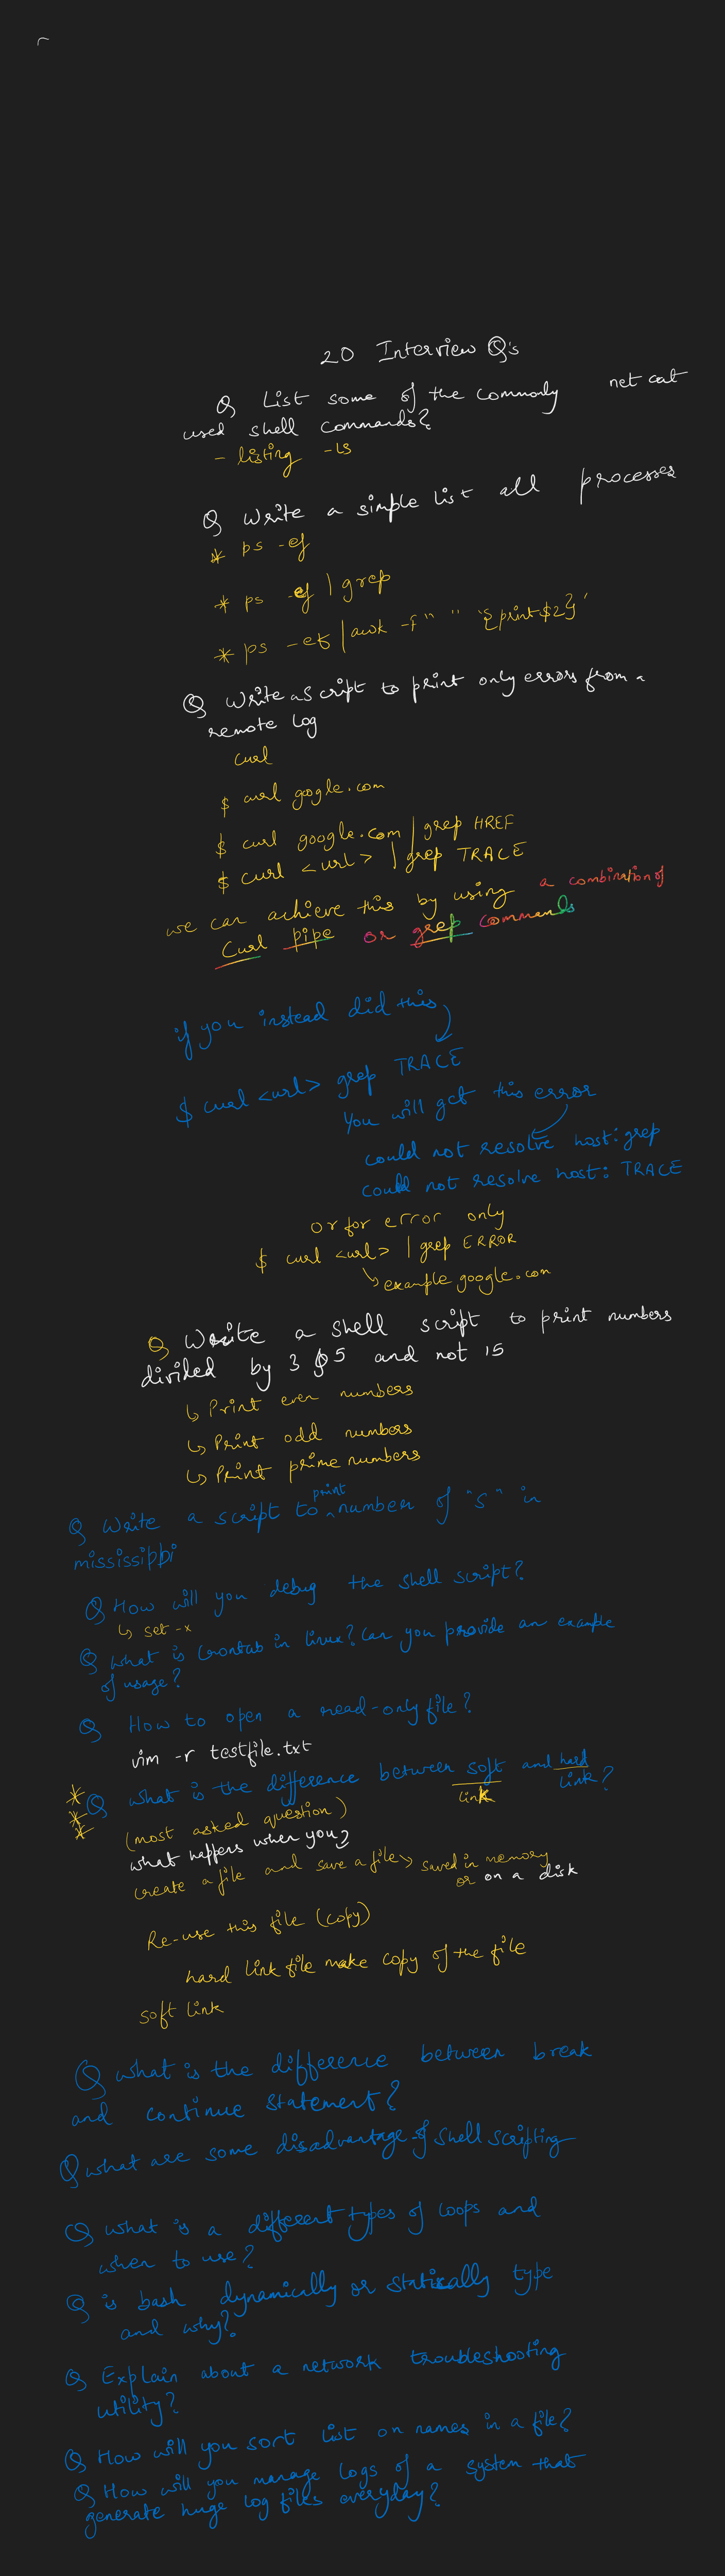 20 Interview Q's
Q List some of the commonly net cat
used shell commands?
- listing -ls
Q Write a simple list all processes
* ps -ef
* ps -ef | grep
* ps -ef | awk -F" " '{print$2}'
Q Write a script to print only errors from a
remote log
curl
$ curl google.com
$ curl google.com | grep HREF
$ curl <url> | grep TRACE
we can achieve this by using a combination of
Curl pipe or grep commands
if you instead did this
$ curl <url> grep TRACE
You will get this error
could not resolve host: grep
could not resolve host: TRACE
or for error only
$ curl <url> | grep ERROR
↳ example google.com
Q Write a shell script to print numbers
divided by 3 & 5 and not 15
↳ Print even numbers
↳ Print odd numbers
↳ Print prime numbers
Q Write a script to print number of "S" in
mississippi
Q How will you debug the shell script?
↳ set -x
Q what is Crontab in linux? Can you provide an example
of usage?
Q How to open a read-only file?
vim -r testfile.txt
*** Q what is the difference between soft link and hard link?
(most asked question)
what happens when you
create a file and save a file → saved in memory
or on a disk
Re-use this file (copy)
hard link file make copy of the file
soft link
Q what is the difference between break
and continue statement?
Q what are some disadvantage of shell scripting
Q what is a different types of loops and
when to use?
Q is bash dynamically or statically type
and why?
Q Explain about a network troubleshooting
utility?
Q How will you sort list on names in a file?
Q How will you manage logs of a system that
generate huge log files everyday?